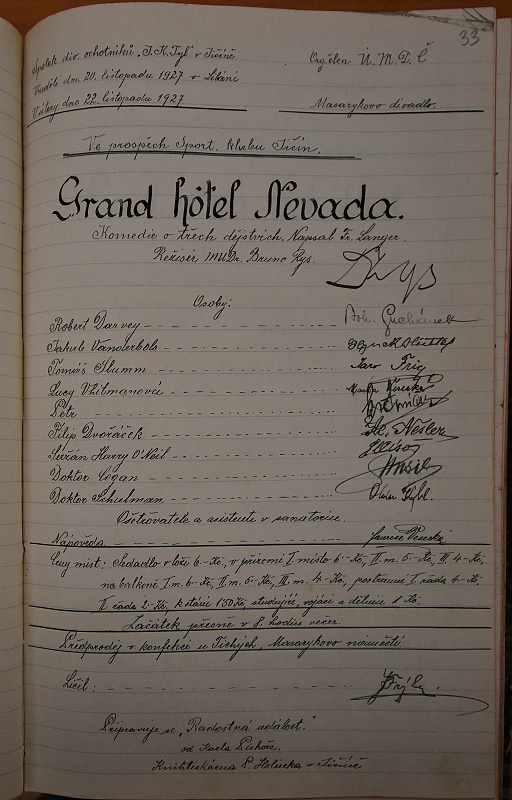 33
Spolek div. ochotníků "J. K. Tyl" v Jičíně
Org. člen Ú. M. D. Č
V neděli dne 20. listopadu 1927 v Libáni
V úterý dne 22. listopadu 1927
Masarykovo divadlo.
Ve prospěch Sport. klubu Jičín.
Grand hôtel Nevada.
Komedie o třech dějstvích. Napsal Fr. Langer.
Režisér MUDr. Bruno Rys.
DrRys
Osoby:
Robert Darvey
Jakub Vanderbols
Tomáš Slumm
Lucy Whitmanová
Petr
Filip Dvořáček
Seržán Harry O'Neil
Doktor Cogan
Doktor Schulman
Ošetřovatelé a asistenti v sanatoriu.
Nápověda
Ceny míst: Sedadlo v lóži 6.-Kč, v přízemí I. místo 6.-Kč, II. m. 5.-Kč, III. 4.-Kč,
na balkoně I. m. 6.-Kč, II. m. 5.-Kč, III. m. 4.-Kč, postranní I. řada 4.-Kč,
II. řada 2.-Kč, k stání 1·50 Kč, studující, vojáci a dělníci 1 Kč.
Začátek přesně v 8. hodin večer.
Předprodej v konfekci u Tichých, Masarykovo náměstí.
Líčil:
Připravuje se „Radostná událost."
od Karla Piskoře.
Knihtiskárna P. Holucka v Jičíně